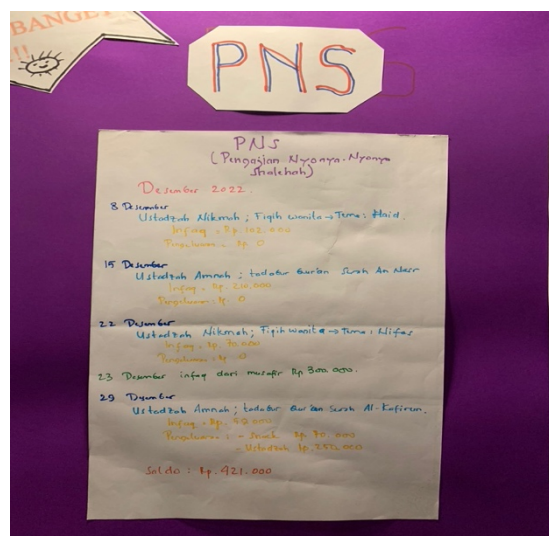 BANGET
!!!
PNS
PNS
(Pengajian Nyonya-Nyonya
Shalehah)
Desember 2022.
8 Desember
Ustadzah Nikmah; Fiqih wanita → Tema: Haid.
Infaq : Rp. 102.000
Pengeluaran : Rp 0
15 Desember
Ustadzah Amnah; tadabur Qur'an Surah An Nasr
Infaq : Rp. 210.000
Pengeluaran : Rp. 0
22 Desember
Ustadzah Nikmah; Fiqih wanita → Tema : Nifas
Infaq : Rp. 70.000
Pengeluaran : Rp 0
23 Desember infaq dari musafir Rp 300.000.
29 Desember
Ustadzah Amnah; tadabur Qur'an Surah Al-Kafirun.
Infaq : Rp. 59.000
Pengeluaran : - Snack Rp 70.000
- Ustadzah Rp. 250.000
Saldo : Rp. 421.000